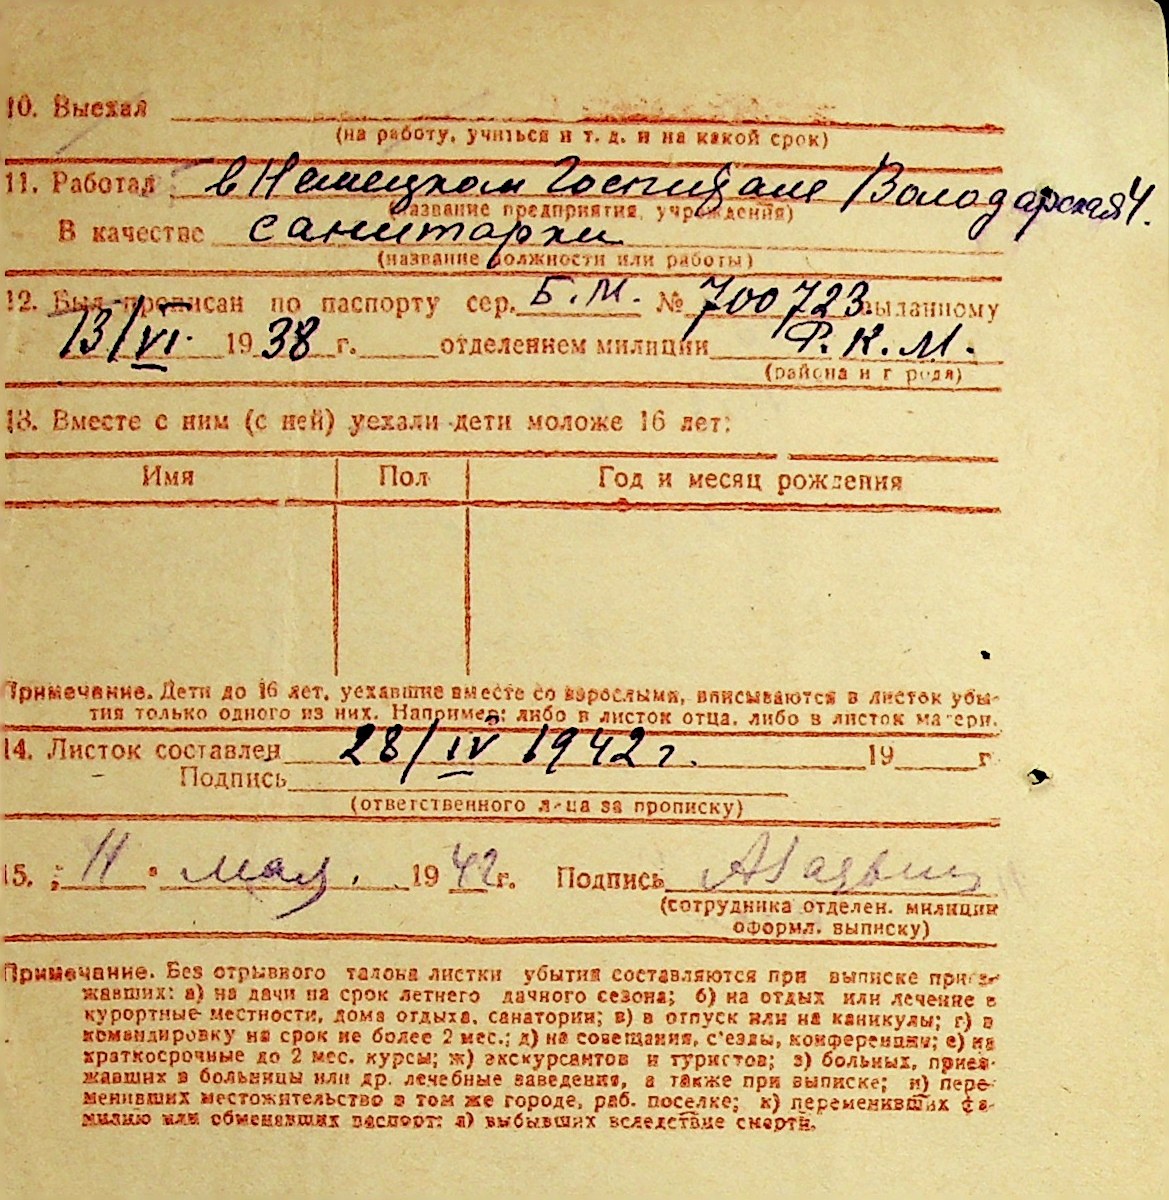 10. Выехал
(на работу, учиться и т. д. и на какой срок)
11. Работал в Немецком Госпитале Володарская 4.
(название предприятия, учреждения)
В качестве санитарки
(название должности или работы)
12. Был прописан по паспорту сер. Б.М. № 700723. выданному
13/VI. 1938 г. отделением милиции Р.К.М.
(района и города)
13. Вместе с ним (с ней) уехали дети моложе 16 лет:
Имя Пол Год и месяц рождения
Примечание. Дети до 16 лет, уехавшие вместе со взрослыми, вписываются в листок убы-
тия только одного из них. Например: либо в листок отца, либо в листок матери.
14. Листок составлен 28/IV 1942 г. 19 г
Подпись
(ответственного лица за прописку)
15. " 11 " мая. 1942 г. Подпись
(сотрудника отделен. милиции
оформл. выписку)
Примечание. Без отрывного талона листки убытия составляются при выписке приез-
жавших: а) на дачи на срок летнего дачного сезона; б) на отдых или лечение в
курортные местности, дома отдыха, санатории; в) в отпуск или на каникулы; г) в
командировку на срок не более 2 мес.; д) на совещания, с'езды, конференции; е) на
краткосрочные до 2 мес. курсы; ж) экскурсантов и туристов; з) больных, приез-
жавших в больницы или др. лечебные заведения, а также при выписке; и) пере-
менивших местожительство в том же городе, раб. поселке; к) переменивших фа-
милию или обменявших паспорт; л) выбывших вследствие смерти.